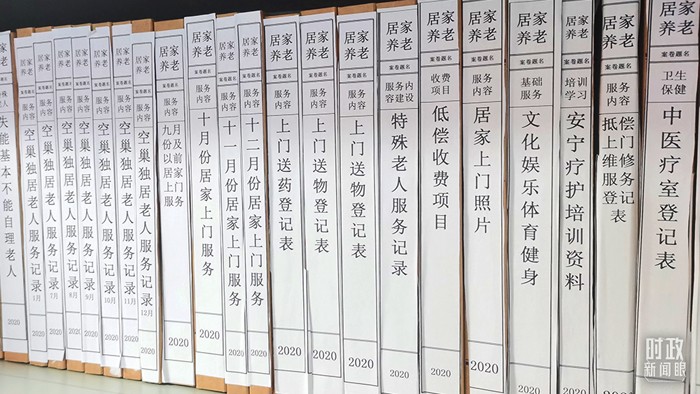 失能基本不能自理老人
2020
居家
养老
案卷题名
服务
内容
空巢独居老人服务记录
1月
2020
居家
养老
案卷题名
服务
内容
空巢独居老人服务记录
7月
2020
居家
养老
案卷题名
服务
内容
空巢独居老人服务记录
8月
2020
居家
养老
案卷题名
服务
内容
空巢独居老人服务记录
9月
2020
居家
养老
案卷题名
服务
内容
空巢独居老人服务记录
10月
2020
居家
养老
案卷题名
服务
内容
空巢独居老人服务记录
11月
2020
居家
养老
案卷题名
服务
内容
空巢独居老人服务记录
12月
2020
居家
养老
案卷题名
服务
内容
九月
份及
以前
居家
上门
服务
2020
居家
养老
案卷题名
服务
内容
十月份居家上门服务
2020
居家
养老
案卷题名
服务
内容
十一月份居家上门服务
2020
居家
养老
案卷题名
服务
内容
十二月份居家上门服务
2020
居家
养老
案卷题名
服务
内容
上门送药登记表
2020
居家
养老
案卷题名
服务
内容
上门送物登记表
2020
居家
养老
案卷题名
服务
内容
上门送物登记表
2020
居家
养老
案卷题名
服务内
容建设
特殊老人服务记录
2020
居家
养老
案卷题名
收费
项目
低偿收费项目
2020
居家
养老
案卷题名
服务
内容
居家上门照片
2020
居家
养老
案卷题名
基础
服务
文化娱乐体育健身
2020
居家
养老
案卷题名
培训
学习
安宁疗护培训资料
2020
居家
养老
案卷题名
服务
内容
抵偿
上门
维修
服务
登记
表
2020
居家
养老
案卷题名
卫生
保健
中医疗室登记表
时政
新闻眼